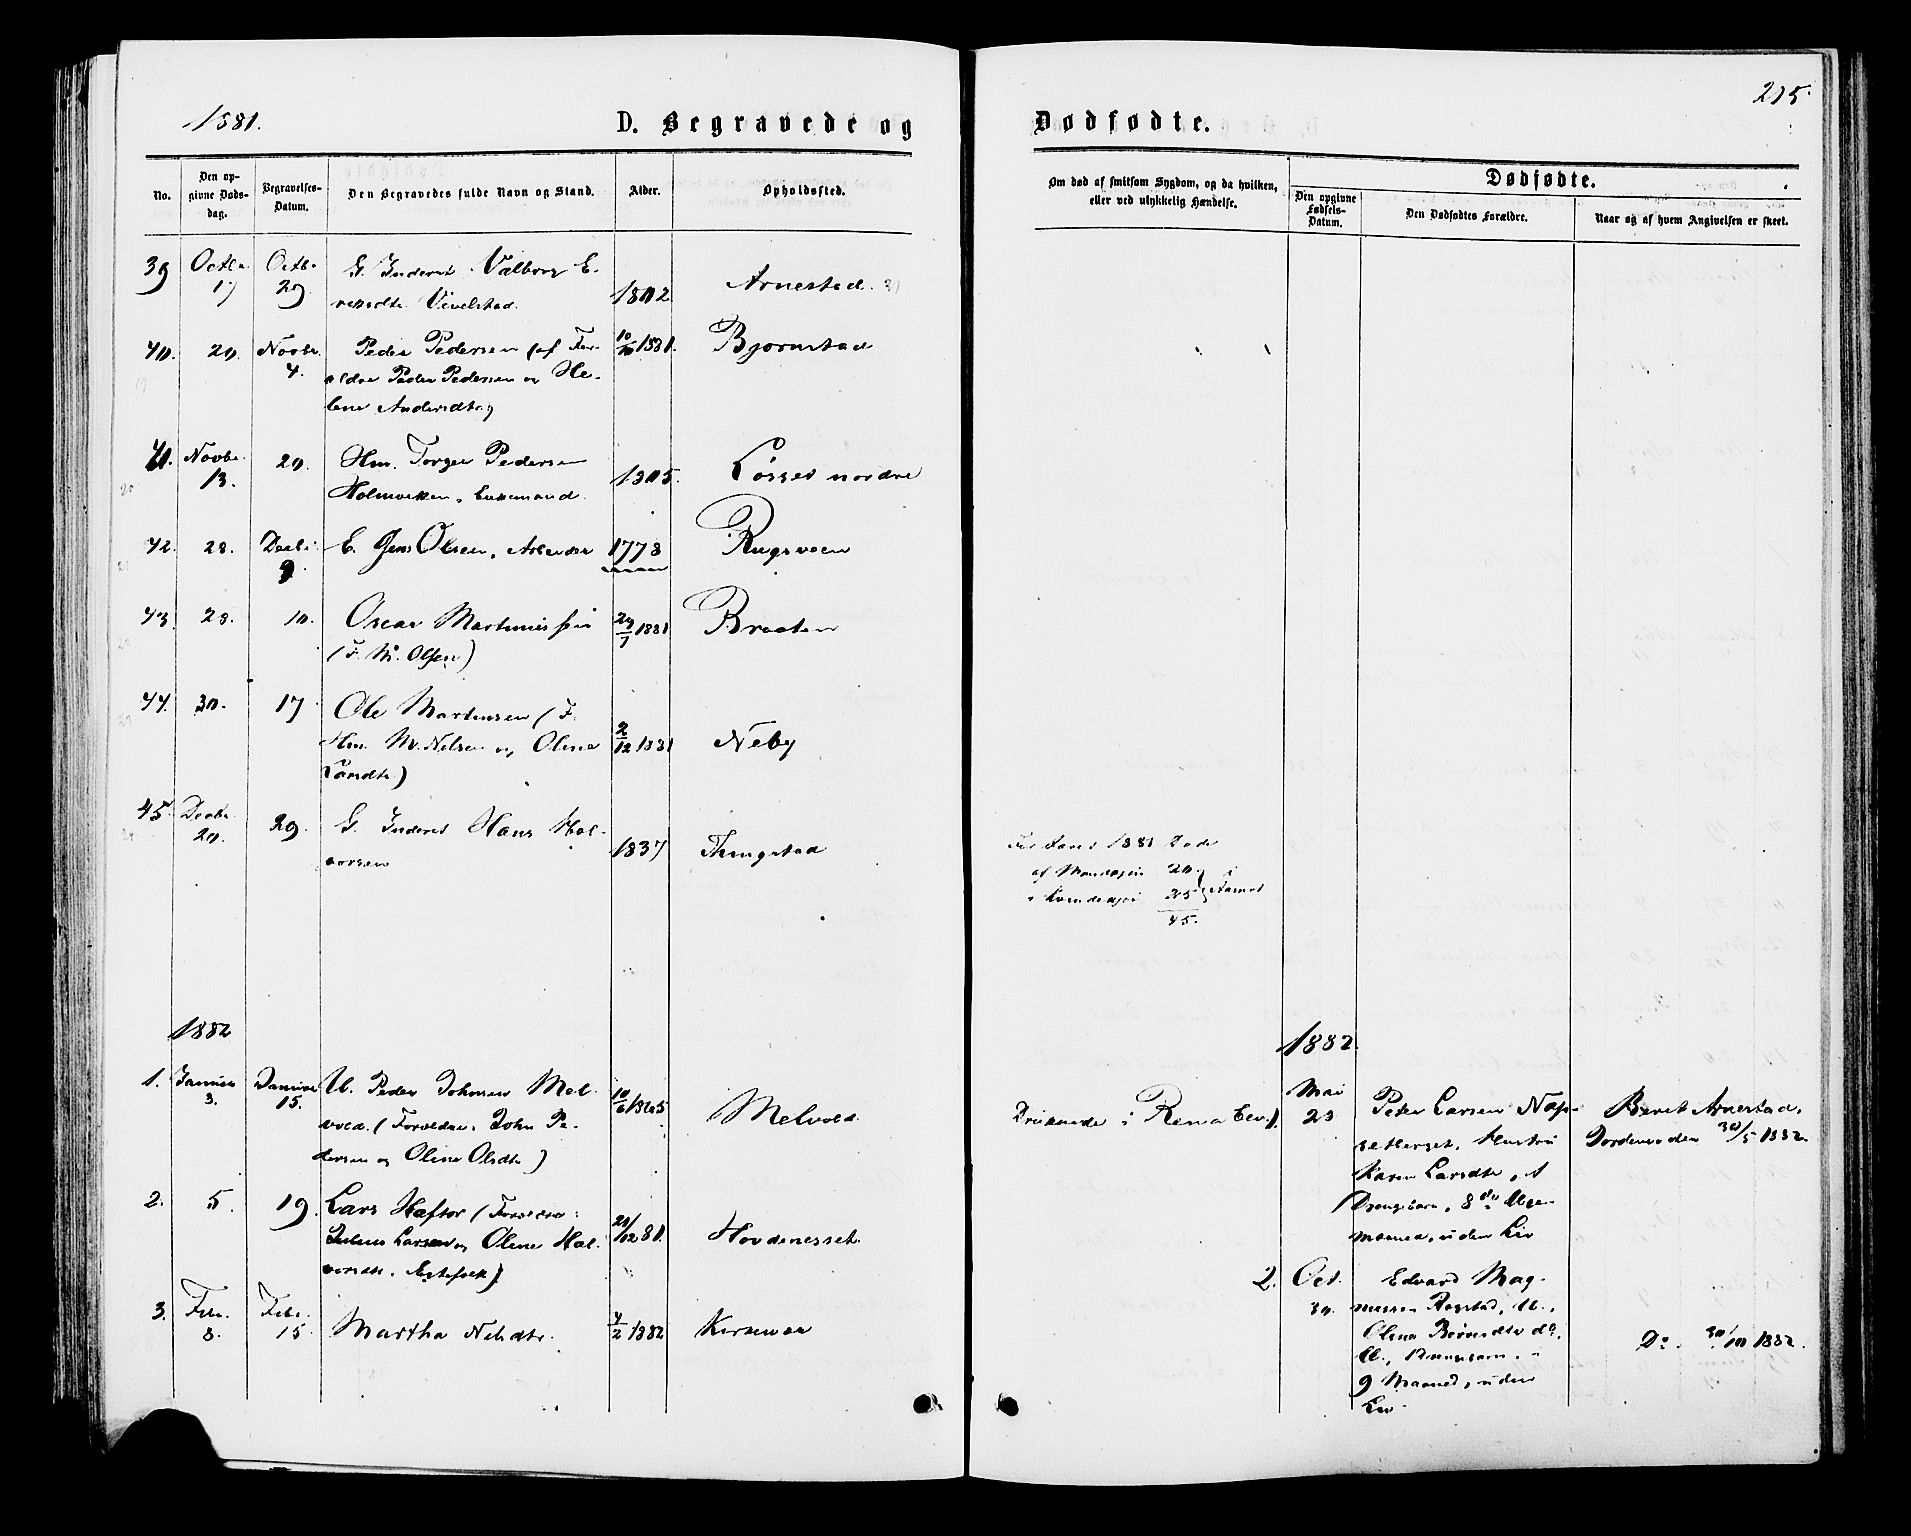 1881.
D. Begravede og
Dødfødte.
215.
No.
Den opgivne Døds-dag.
Begravelses-Datum.
Den Begravedes fulde Navn og Stand.
Alder.
Opholdssted.
Om død af smitsom Sygdom, og da hvilken,
eller ved ulykkelig Hændelse.
Dødfødte.
Den opgivne Fødsels-Datum.
Den Dødfødtes Forældre.
Naar og af hvem Angivelsen er skeet.
39 Octbr. 17 Octbr. 29 G. Inderst Valborg E-
Vivelstad. 1802 Arnestad.
40. 20. Novbr. 4. Peder Pedersen (af For-
ældre Peder Pedersen og He-
lene Andersdtr) 10/10 1881. Bjørnstad
41. Novbr. 13. 20. Hm. Torger Pedersen
Holmbakken. 1805. Løsset nordre
42. 28. Decbr. 9. E. Jens Olsen, Arbeider 1778 Rugsveen
43. 28. 10. Oscar Martinussen
(F. M. Olsen) 29/7 1881 Braaten
44. 30. 17 Ole Martinsen (F.
Hm. M. Nilsen og Oline
Larsdtr) 2/12 1881 Neby
45. Decbr. 20. 29. G. Inderst Hans Hal-
vorsen 1837 Thingstad
For Aaret 1881 Døde
af Mandkjøn 20.
" Kvindekjøn 25
45.
1882
1882.
1. Januar 3. Januar 15. U. Peder Johnsen Mel-
vold. (Forældre: John Pe-
dersen og Oline Olsdtr) Melvold
Druknede i Rena Elv.
Mai 23 Peder Larsen Næp-
setberget, Hustru
Karen Larsdtr, 1
Drengebarn, 8de
maaned, uden Liv
Beret Arnestad,
Jordemoder 30/5 1882.
2. 5. 19. Lars Haftor (Forældre:
Julius Larsen og Oline Hal-
vorsdtr. Egtefolk) 21/12 81. Hovdenesset
3. Febr. 8. Febr. 15. Martha Nilsdtr. 4/2 1882
2. Oct. 30. Edvard Mag-
nussen Rogstad, U.,
Olina
U., Drengebarn,
9 Maaned, uden
Liv.
Do. 30/10 1882.